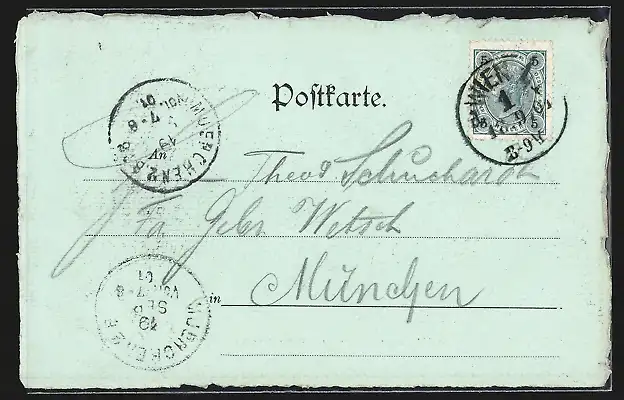 Postkarte.
5 5
WIEN 1
1
8-9V
5 5
MUENCHEN 2. B.Z.
19
7-8
01.
An
Theod Schuchardt
Fa Gebr Wetsch
in München
MUENCHEN 2
19
SEP
VOR. 7-8
01